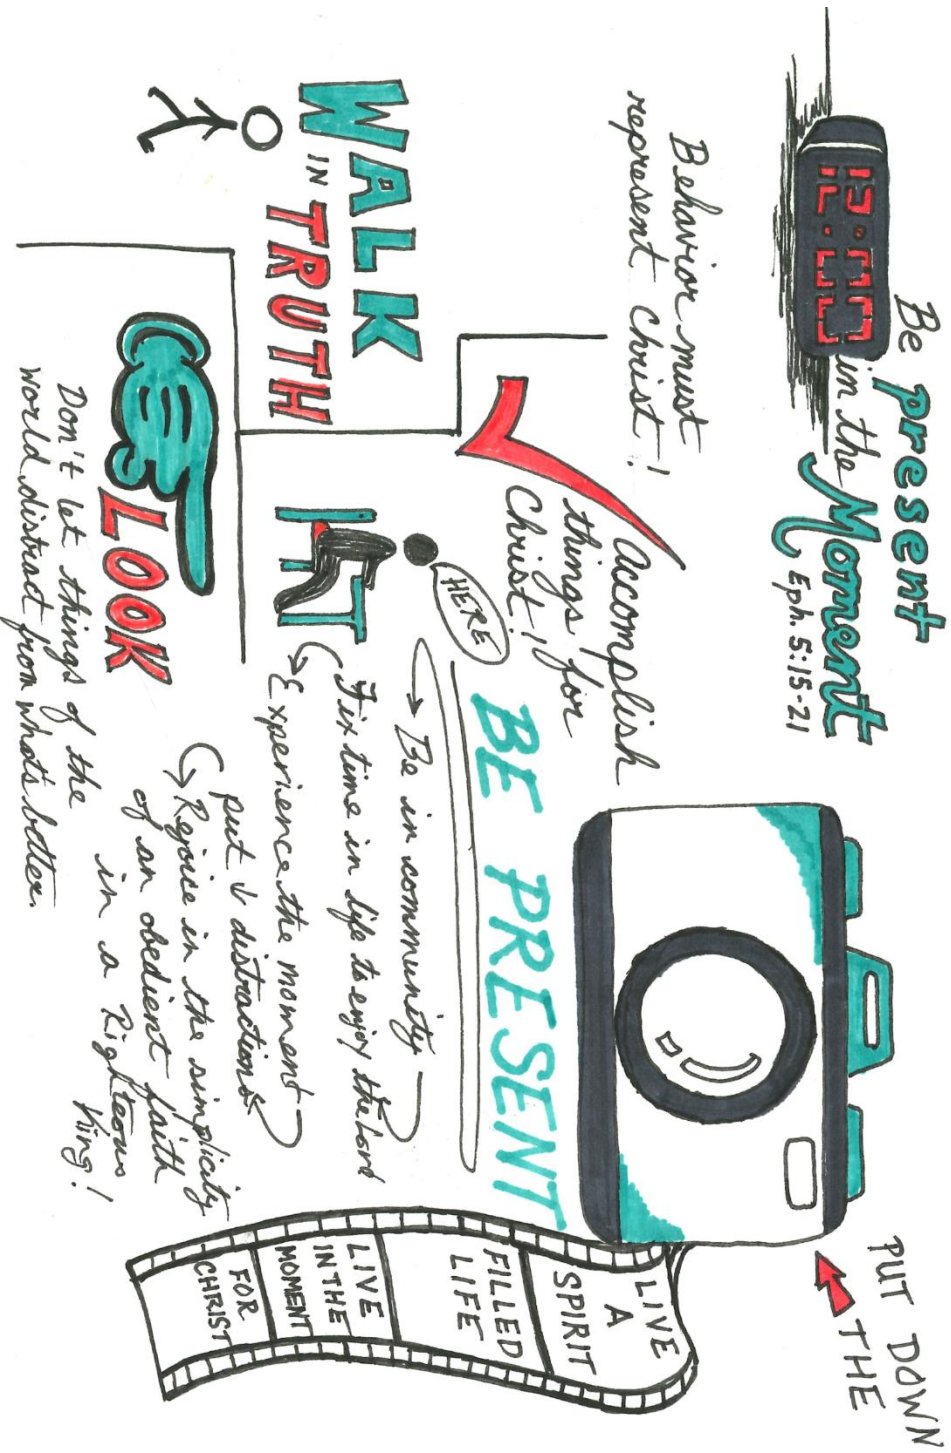 Be present
in the Moment
Eph. 5:15-21
12:00
PUT DOWN
THE
Behavior must
represent Christ!
accomplish
things for
Christ!
WALK
IN TRUTH
HERE
BE PRESENT
Be in community
Fix time in life to enjoy the Lord
Experience the moment
put ↓ distractions
Rejoice in the simplicity
of an obedient faith
in a Righteous
King!
LOOK
Don't let things of the
world distract from what's better.
LIVE
A
SPIRIT
FILLED
LIFE
LIVE
IN THE
MOMENT
FOR
CHRIST